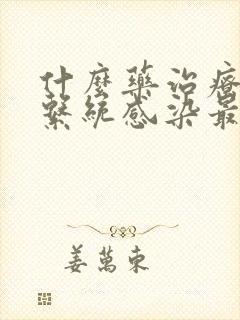 什麼藥治療
繫統感染最
姜萬東